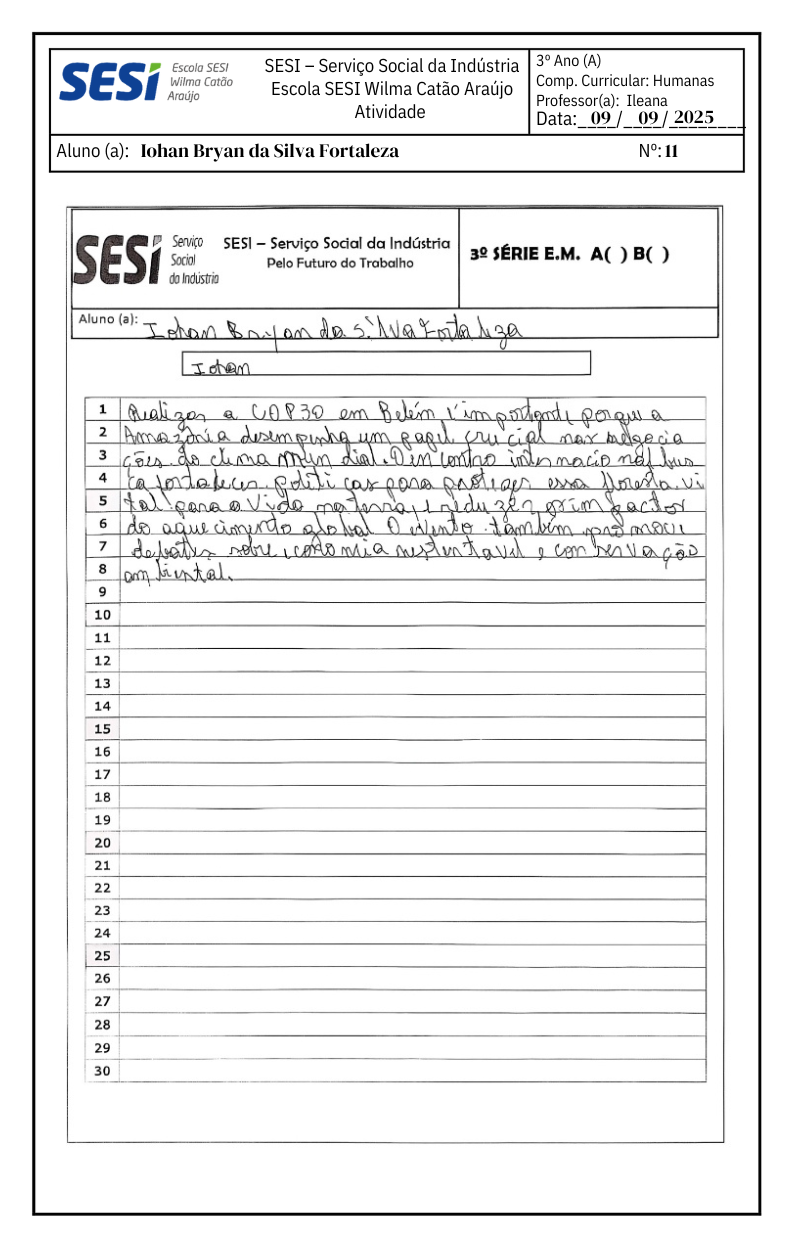 SESI
Escola SESI
Wilma Catão
Araújo
SESI – Serviço Social da Indústria
Escola SESI Wilma Catão Araújo
Atividade
3º Ano (A)
Comp. Curricular: Humanas
Professor(a): Ileana
Data: 09 / 09 / 2025
Aluno (a): Iohan Bryan da Silva Fortaleza
Nº: 11
SESI
Serviço
Social
da Indústria
SESI – Serviço Social da Indústria
Pelo Futuro do Trabalho
3º SÉRIE E.M. A( ) B( )
Aluno (a): Iohan Bryan da Silva Fortaleza
Iohan
1 Realizar a COP30 em Belém é importante porque a
2 Amazônia desempenha um papel crucial nas negocia
3 ções do clima mundial. O encontro internacional bus
4 ca fortalecer políticas para proteger essa floresta vi
5 tal para a vida na terra, e reduzir os impactos
6 do aquecimento global O evento também promove
7 debates sobre economia sustentavel e conservação
8 ambiental.
9
10
11
12
13
14
15
16
17
18
19
20
21
22
23
24
25
26
27
28
29
30